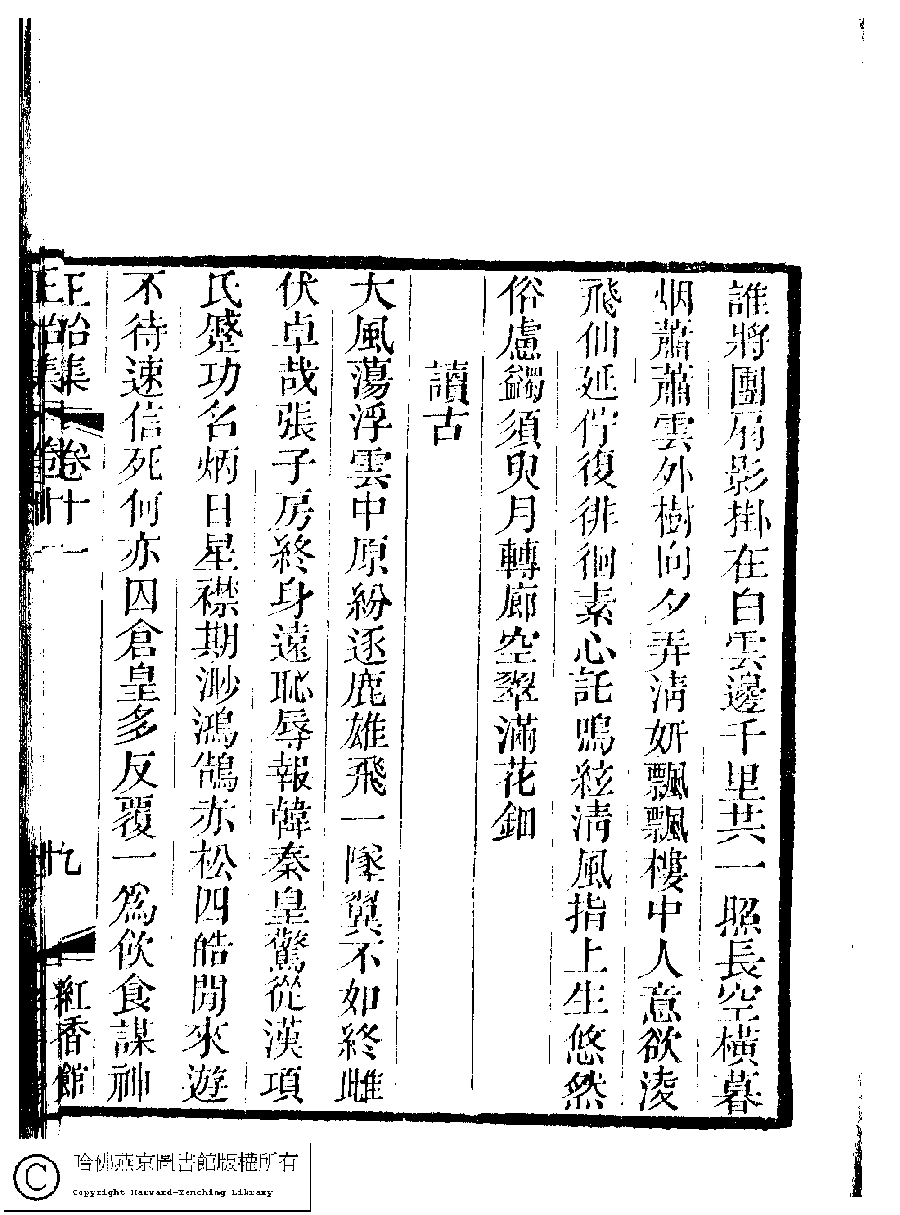 誰將團扇影掛在白雲邊千里共一照長空橫暮
烟蕭蕭雲外樹向夕弄淸妍飄飄樓中人意欲淩
飛仙延佇復徘徊素心託鳴絃淸風指上生悠然
俗慮蠲須臾月轉廊空翠滿花鈿
讀古
大風蕩浮雲中原紛逐鹿雄飛一墜翼不如終雌
伏卓哉張子房終身遠恥辱報韓秦皇驚從漢項
氏蹙功名炳日星襟期渺鴻鵠赤松四皓閒來遊
不待速信死何亦囚倉皇多反覆一爲飮食謀神
卷十一
九
紅香館
哈佛燕京圖書館版權所有
Copyright Harvard-Yenching Library